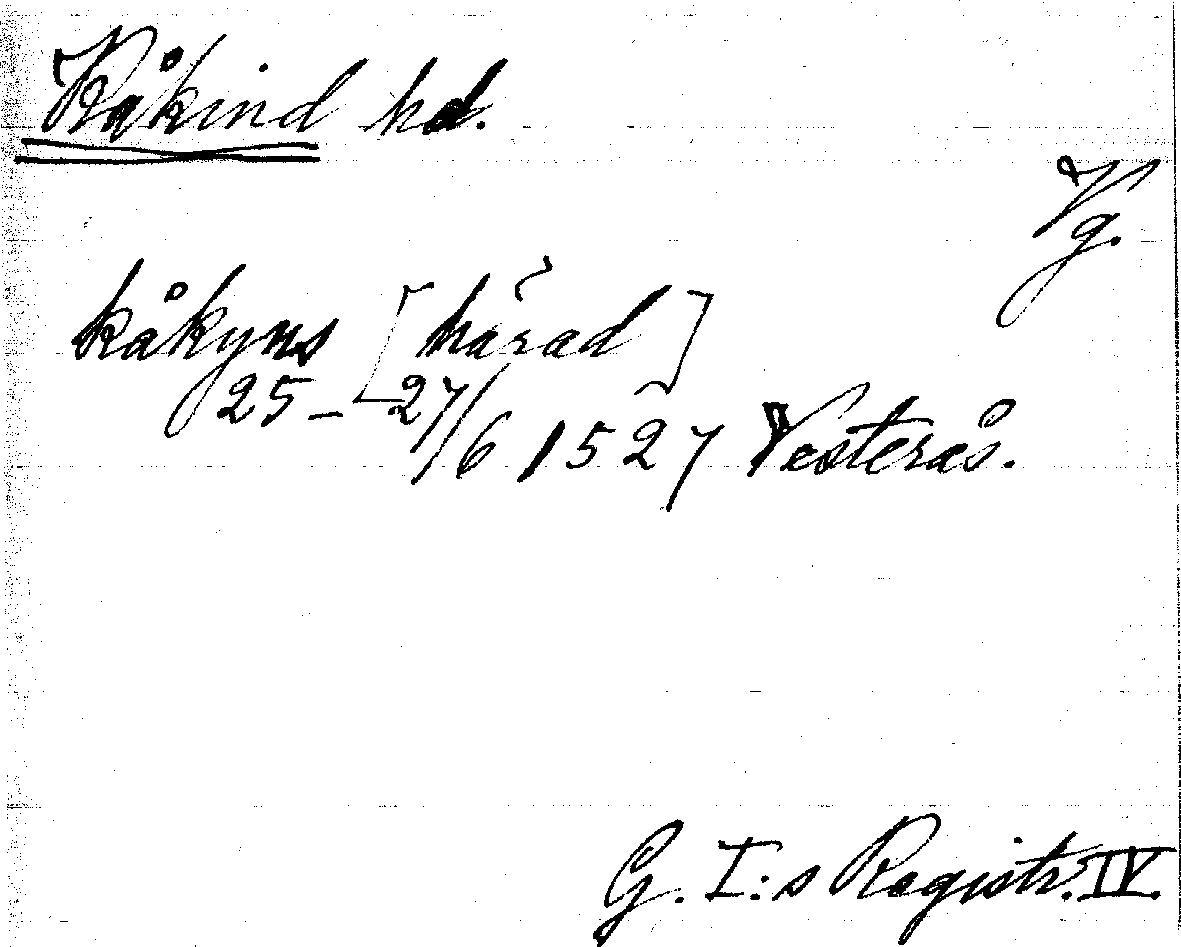 Kåkind hd.
Vg.
kåkyns [härad]
25–27/6 1527 Vesterås.
G. I:s Registr. IV.